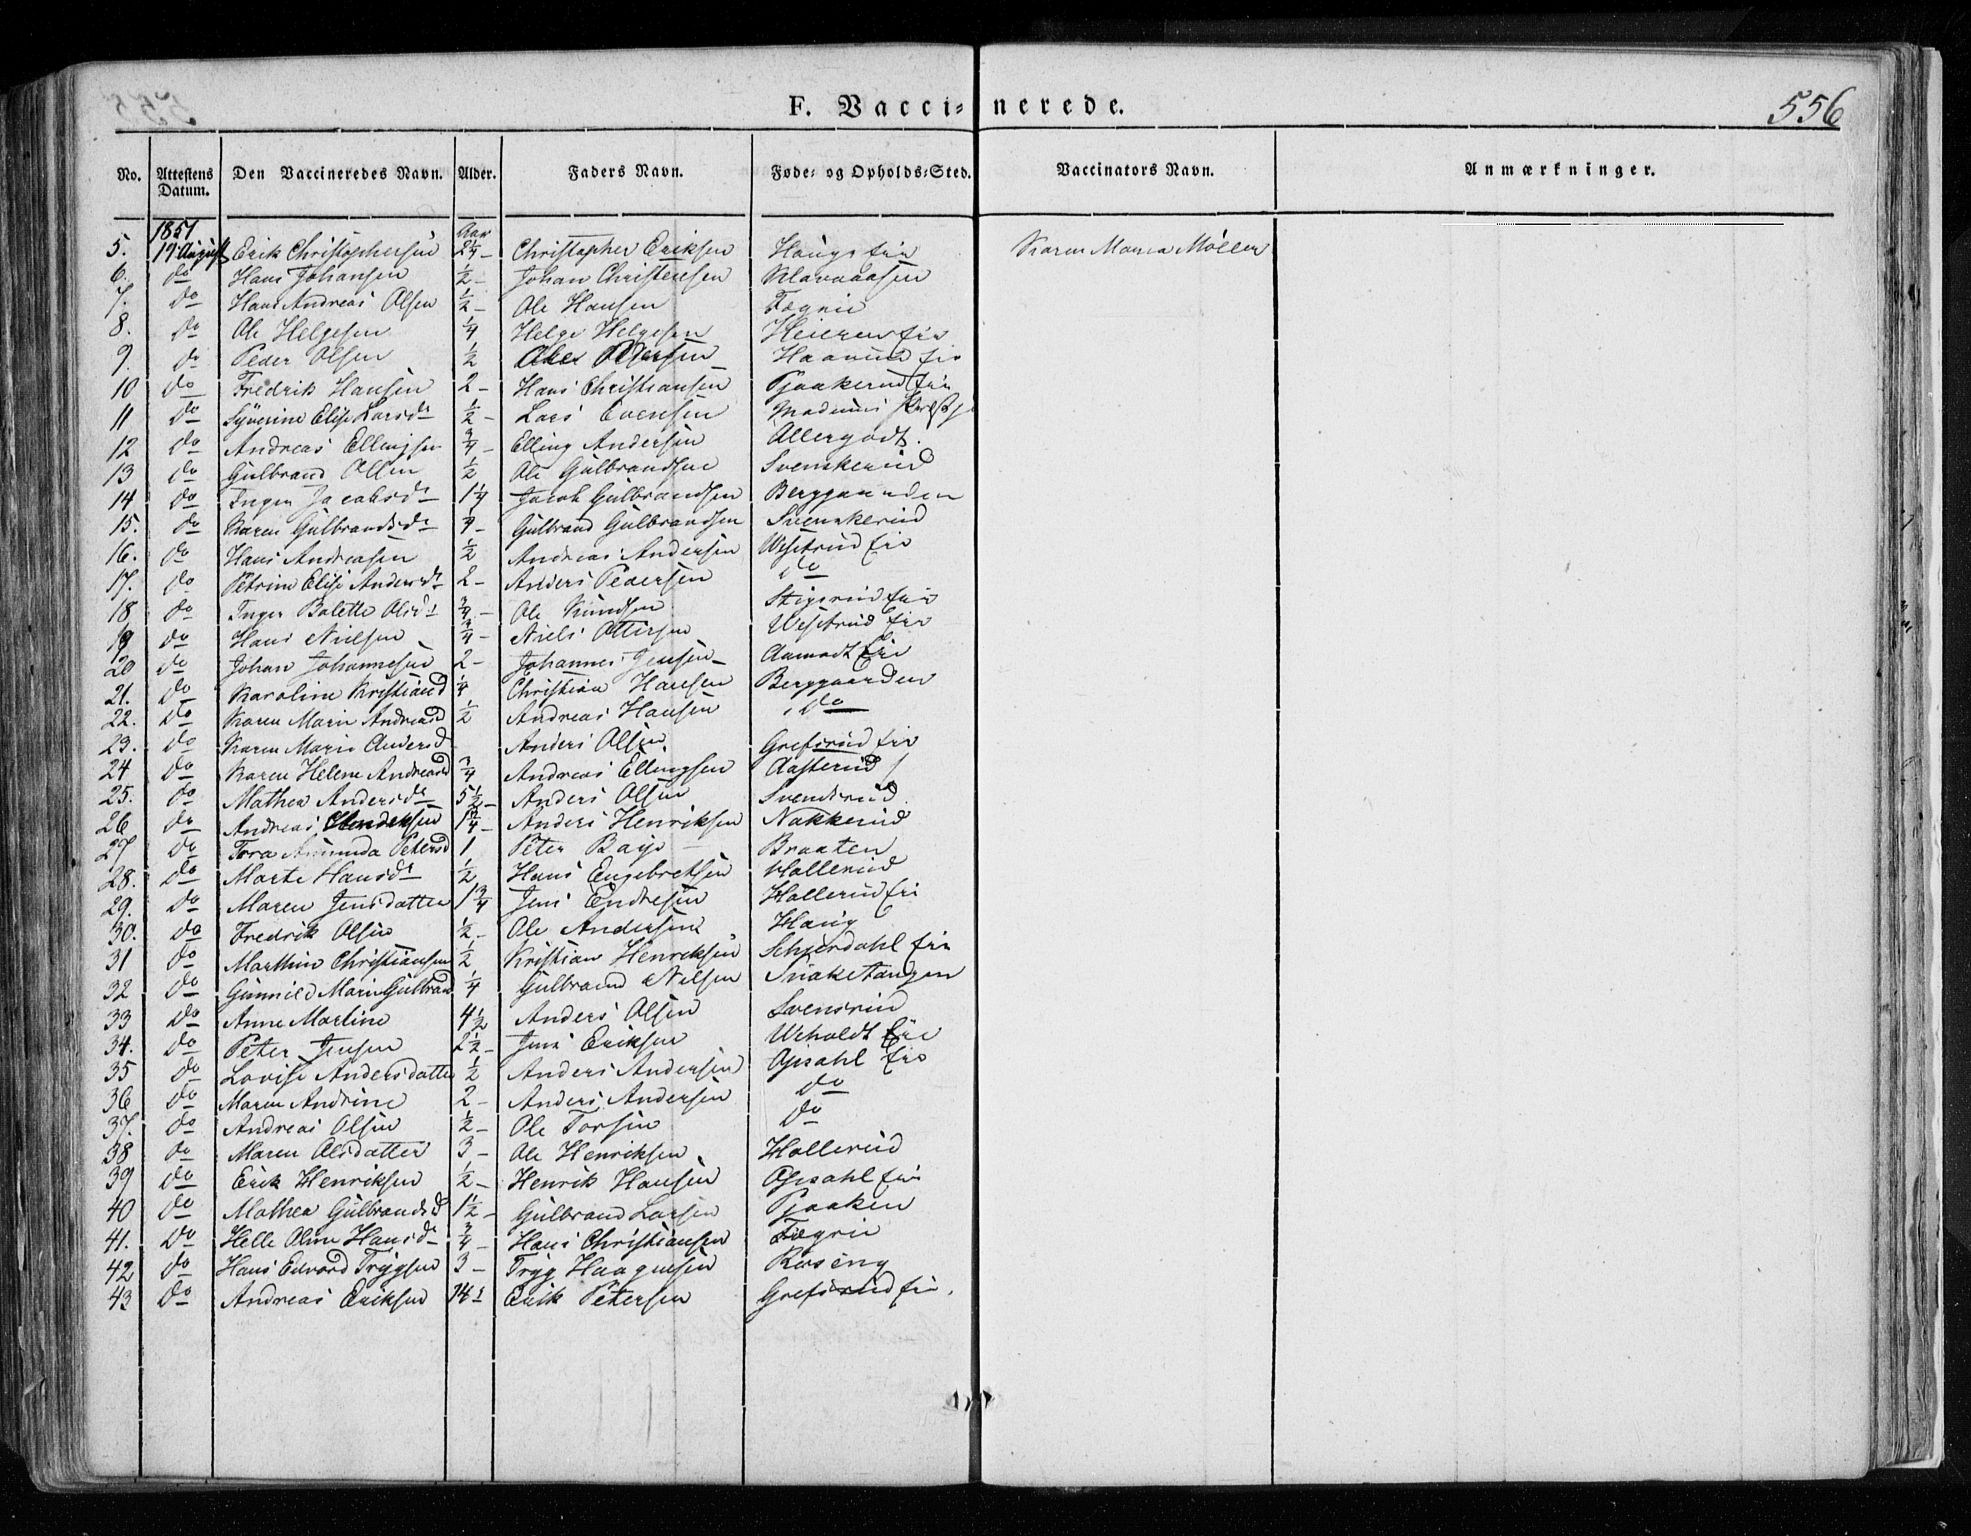 F. Vacci-nerede.
556
No. Attestens Datum. Den Vaccineredes Navn. Alder. Faders Navn. Føde- og Opholds-Sted. Vaccinators Navn. Anmærkninger.
1851 Aar
5. 19 August Erik Christophersen 2¼ - Christopher Eriksen Haugs Eie Karen Maria Møller
6. do Hans Johansen ½ - Johan Christensen
7. do Hans Andreas Olsen ½ - Ole Hansen Fægrie
8. do Ole Helgesen ¼ Helge Helgesen Heieren Eie
9. do Peder Olsen ½ Pedersen
10 do Fredrik Hansen 2 - Hans Christiansen Pjaakerud Eie
11 do Syverine Elise Larsdr ½ - Lars Evensen
12 do Andreas Ellingsen ¾ - Elling Andersen Allergodt.
13 do Gulbrand Olsen ½ Ole Gulbrandsen Svenskerud
14 do Inger Jacobsdr 1¼ Jacob Gulbrandsen Berggaarden
15. do Karen Gulbrandsdr Gulbrand Gulbrandsen Svenskerud
16. do Hans Andreasen ½ Andreas Andersen Vesetrud Eie
17. do Petrine Elise Andersdr 2 - Anders Pedersen do
18 do Inger Bolette Olsdr ¾ - Ole Knudsen Stigsrud Eie
19 do Hans Nielsen ¾ - Niels Ottersen Vesetrud Eie
20 do Johan Johannesen 2 - Johannes Jensen - Aamodt Eie
21. do Karoline Kristiand ¼ Christian Hansen Berggaarden
22. do Karen Marie Andreasd ½ Andreas Hansen do
23. do Karen Marie Andersd Anders Olsen Grefsrud Eie
24 do Karen Helene Andreasd ¾ Andreas Ellingsen Aasterud
25. do Mathea Andersdr 5½ - Anders Olsen Svendsrud
26 do Andreas Hendriksen 1¼ - Anders Henriksen Nakkerud
27 do Tora Amunda Petersd 1 Peter Braaten
28. do Marte Hansdr ½ Hans Engebretsen Hollerud
29. do Maren Jensdatter 1¾ Jens Endresen Hollerud Eie
30. do Fredrik Olsen ½ - Ole Andersen Haug
31 do Marthin Christiansen ½ Kristian Henriksen Schjerdahl Eie
32 do Gunnild Marie Gulbrand ¼ Gulbrand Nilsen Snaketangen
33 do Anne Martine 4½ Anders Olsen Svensrud
34. do Peter Jensen 2½ - Jens Eriksen Veholdt Eie
35 do Lovise Andersdatter ½ Anders Andersen Opsahl Eie
36 do Maren Andrine 2 - Anders Andersen do
37. do Andreas Olsen ½ - Ole Torsen do
38 do Maren Olsdatter 3 - Ole Henriksen Hollerud
39 do Erik Henriksen ½ - Henrik Hansen Opsahl Eie
40 do Mathea Gulbrandsd 1½ - Gulbrand Larsen Pjaaken
41. do Helle Oline Hansdr ¾ - Hans Christiansen Fægrie
42 do Hans Edvard Trygsen 3 - Tryg Haagensen Røseng
43 do Andreas Eriksen Erik Petersen Grefsrud Eie.